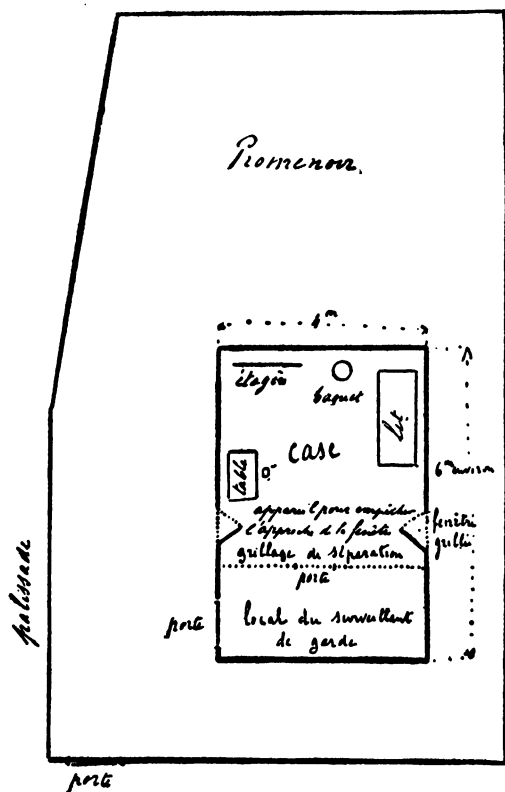 Promenoir.
4m
étagère
baquet
lit
case
table
6m environ
appareil pour empêcher
l'approche de la fenêtre
fenêtre
grillée
grillage de séparation
porte
porte
local du surveillant
de garde
palissade
porte